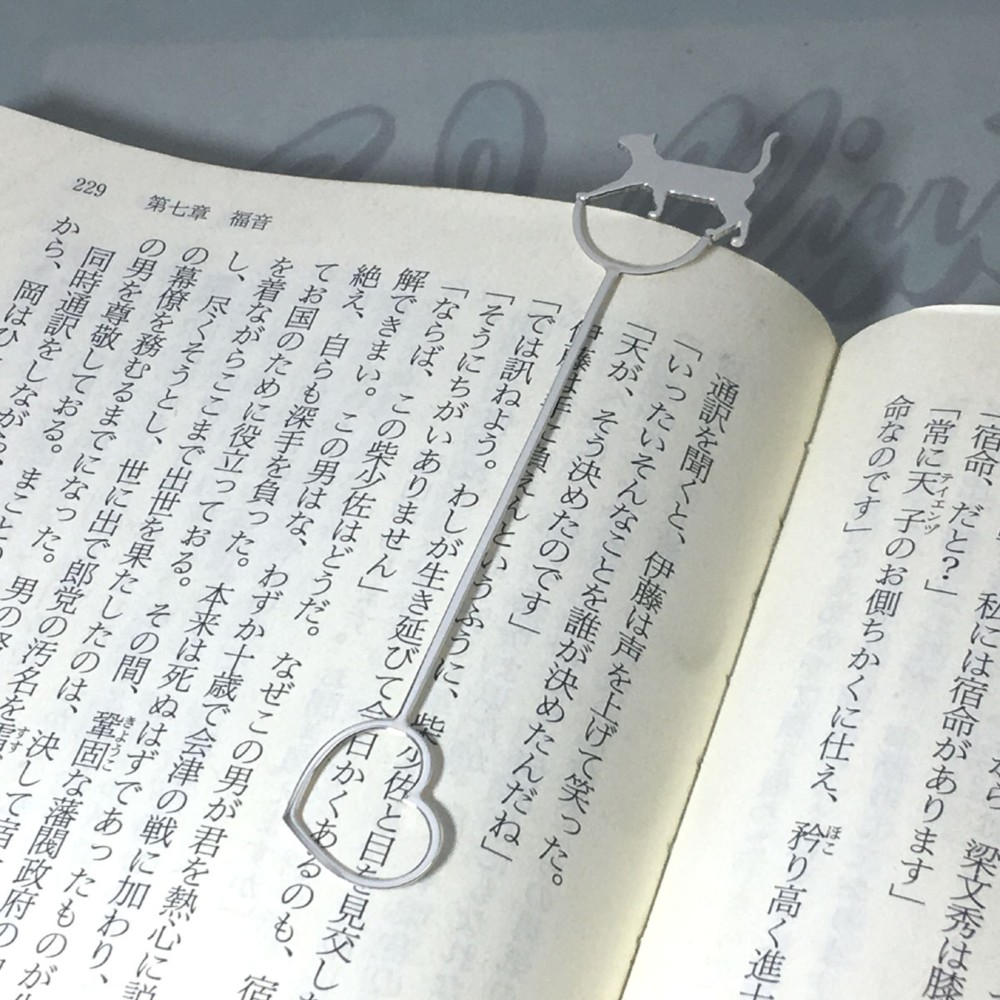 梁文秀は膝
私には宿命があります」
「宿命、だと?」
「常に天子のお側ちかくに仕え、矜り高く進士
命なのです」
229 第七章 福音
通訳を聞くと、伊藤は声を上げて笑った。
「いったいそんなことを誰が決めたんだね」
「天が、そう決めたのです」
伊藤は手に負えんというふうに、柴少佐と目を見交し
「では訊ねよう。わしが生き延びて今日かくあるのも、宿
「そうにちがいありません」
「ならば、この柴少佐はどうだ。なぜこの男が君を熱心に説
解できまい。この男はな、わずか十歳で会津の戦に加わり、
絶え、自らも深手を負った。本来は死ぬはずであったものが生
てお国のために役立っておる。その間、鞏固な藩閥政府の
を着ながらここまで出世を果たしたのは、決して宿
し、尽くそうとし、世に出で郎党の汚名を雪
の幕僚を務むるまでになった。男の
の男を尊敬しておる。まこと
同時通訳をしながら、
から、岡はひ